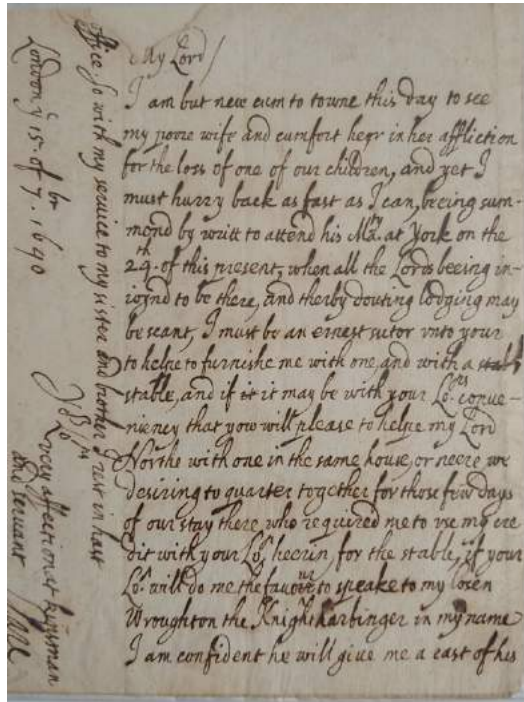 My Lord/
I am but new cum to towne this day to see
my poore wife and cumfort hegr in her affliction
for the loss of one of our children, and yet I
must hurry back as fast as I can, beeing sum-
mond by writt to attend his Ma:ty at York on the
24th of this present, when all the Lords beeing in-
ioynd to be there, and therby douting lodging may
be scant, I must be an ernest sutor vnto your
to helpe to furnishe me with one, and with a stabl
stable, and if it it may be with your Lo:ps conve-
niency that yow will please to helpe my Lord
Northe with one in the same house, or neere we
desiring to quarter together for those few days
of our stay there, who required me to vse my cre
dit with your Lo:p heerin, for the stable, if your
Lo:p will do me the favour to speake to my cosen
Wroughton the Knight harbinger in my name
I am confident he will give me a cast of his
office. So with my service to my sister and brother I rest in hast
London ye 15. of 7.br 1640
Lo:ps very affectionat kinsman
and servant